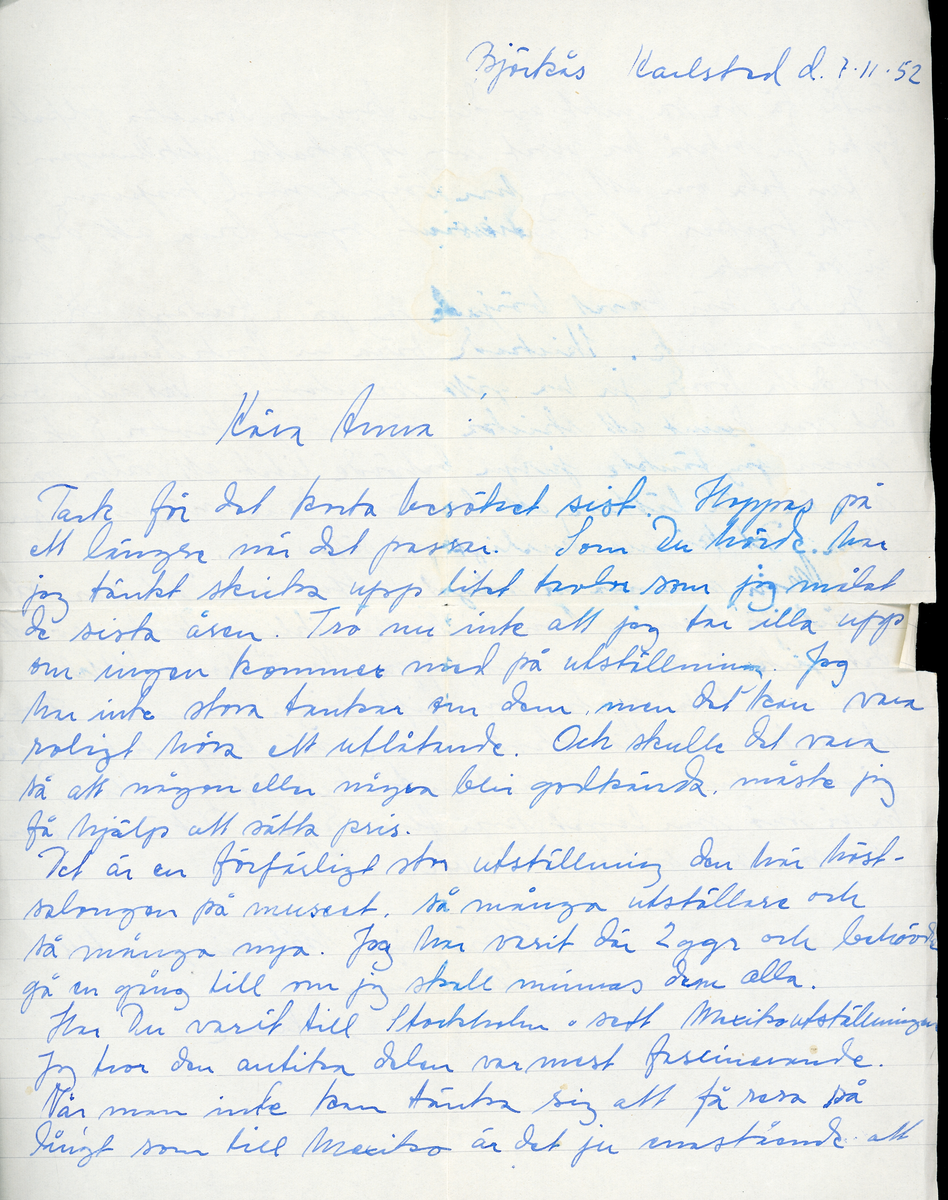 Björkås Karlstad d. 7.11.52
Kära Anna!
Tack för det korta besöket sist. Hoppas på
ett längre när det passar. Som Du hörde har
jag tänkt skicka upp litet tavlor som jag målat
de sista åren. Tro nu inte att jag tar illa upp
om ingen kommer med på utställningen. Jag
har inte stora tankar om dem, men det kan vara
roligt höra ett utlåtande. Och skulle det vara
så att någon eller några blir godkända, måste jag
få hjälp att sätta pris.
Det är en förfärligt stor utställning den här höst-
salongen på museet, så många utställare och
så många nya. Jag har varit där 2 ggr och behövde
gå en gång till om jag skall minnas dem alla.
Har Du varit till Stockholm o sett Mexikoutställningen
Jag tror den antika delen var mest fascinerande.
När man inte kan tänka sig att få resa så
långt som till Mexiko är det ju enastående att